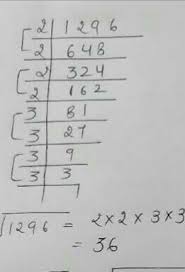 2 | 1296
2 | 648
2 | 324
2 | 162
3 | 81
3 | 27
3 | 9
3 | 3
1
√1296 = 2×2×3×3
= 36